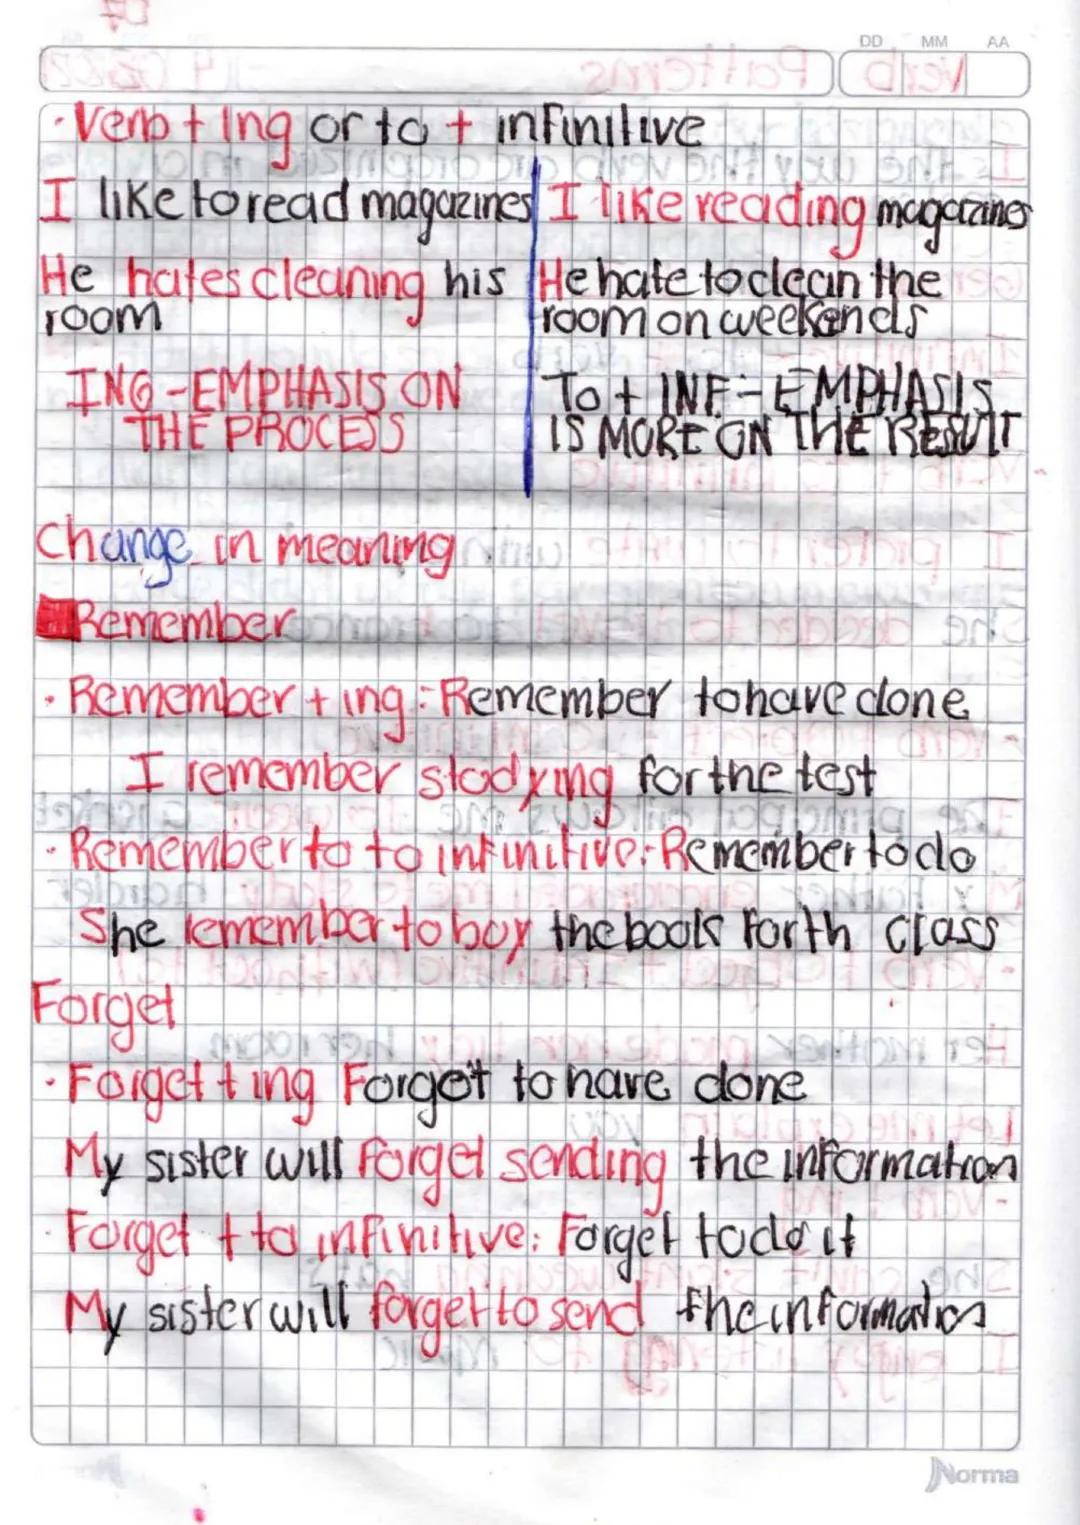 DD MM AA
· Verb + Ing or to + infinitive
I like to read magazines
I like reading magazines
He hates cleaning his
room
He hate to clean the
room on weekends
ING - EMPHASIS ON
THE PROCESS
To + INF - EMPHASIS
IS MORE ON THE RESULT
Change in meaning
Remember
· Remember + ing: Remember to have done
I remember studying for the test
· Remember to to infinitive: Remember to do
She remember to boy the books for th class
Forget
· Forget + ing Forget to have done
My sister will forget sending the information
· Forget + to infinitive: Forget to do it
My sister will forget to send the information
Norma